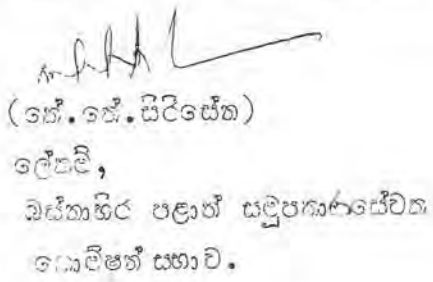 (කේ.කේ.සිරිසේන)
ලේකම්,
බස්නාහිර පළාත් සමූපකාණසේවක
කොමිෂන් සභාව.